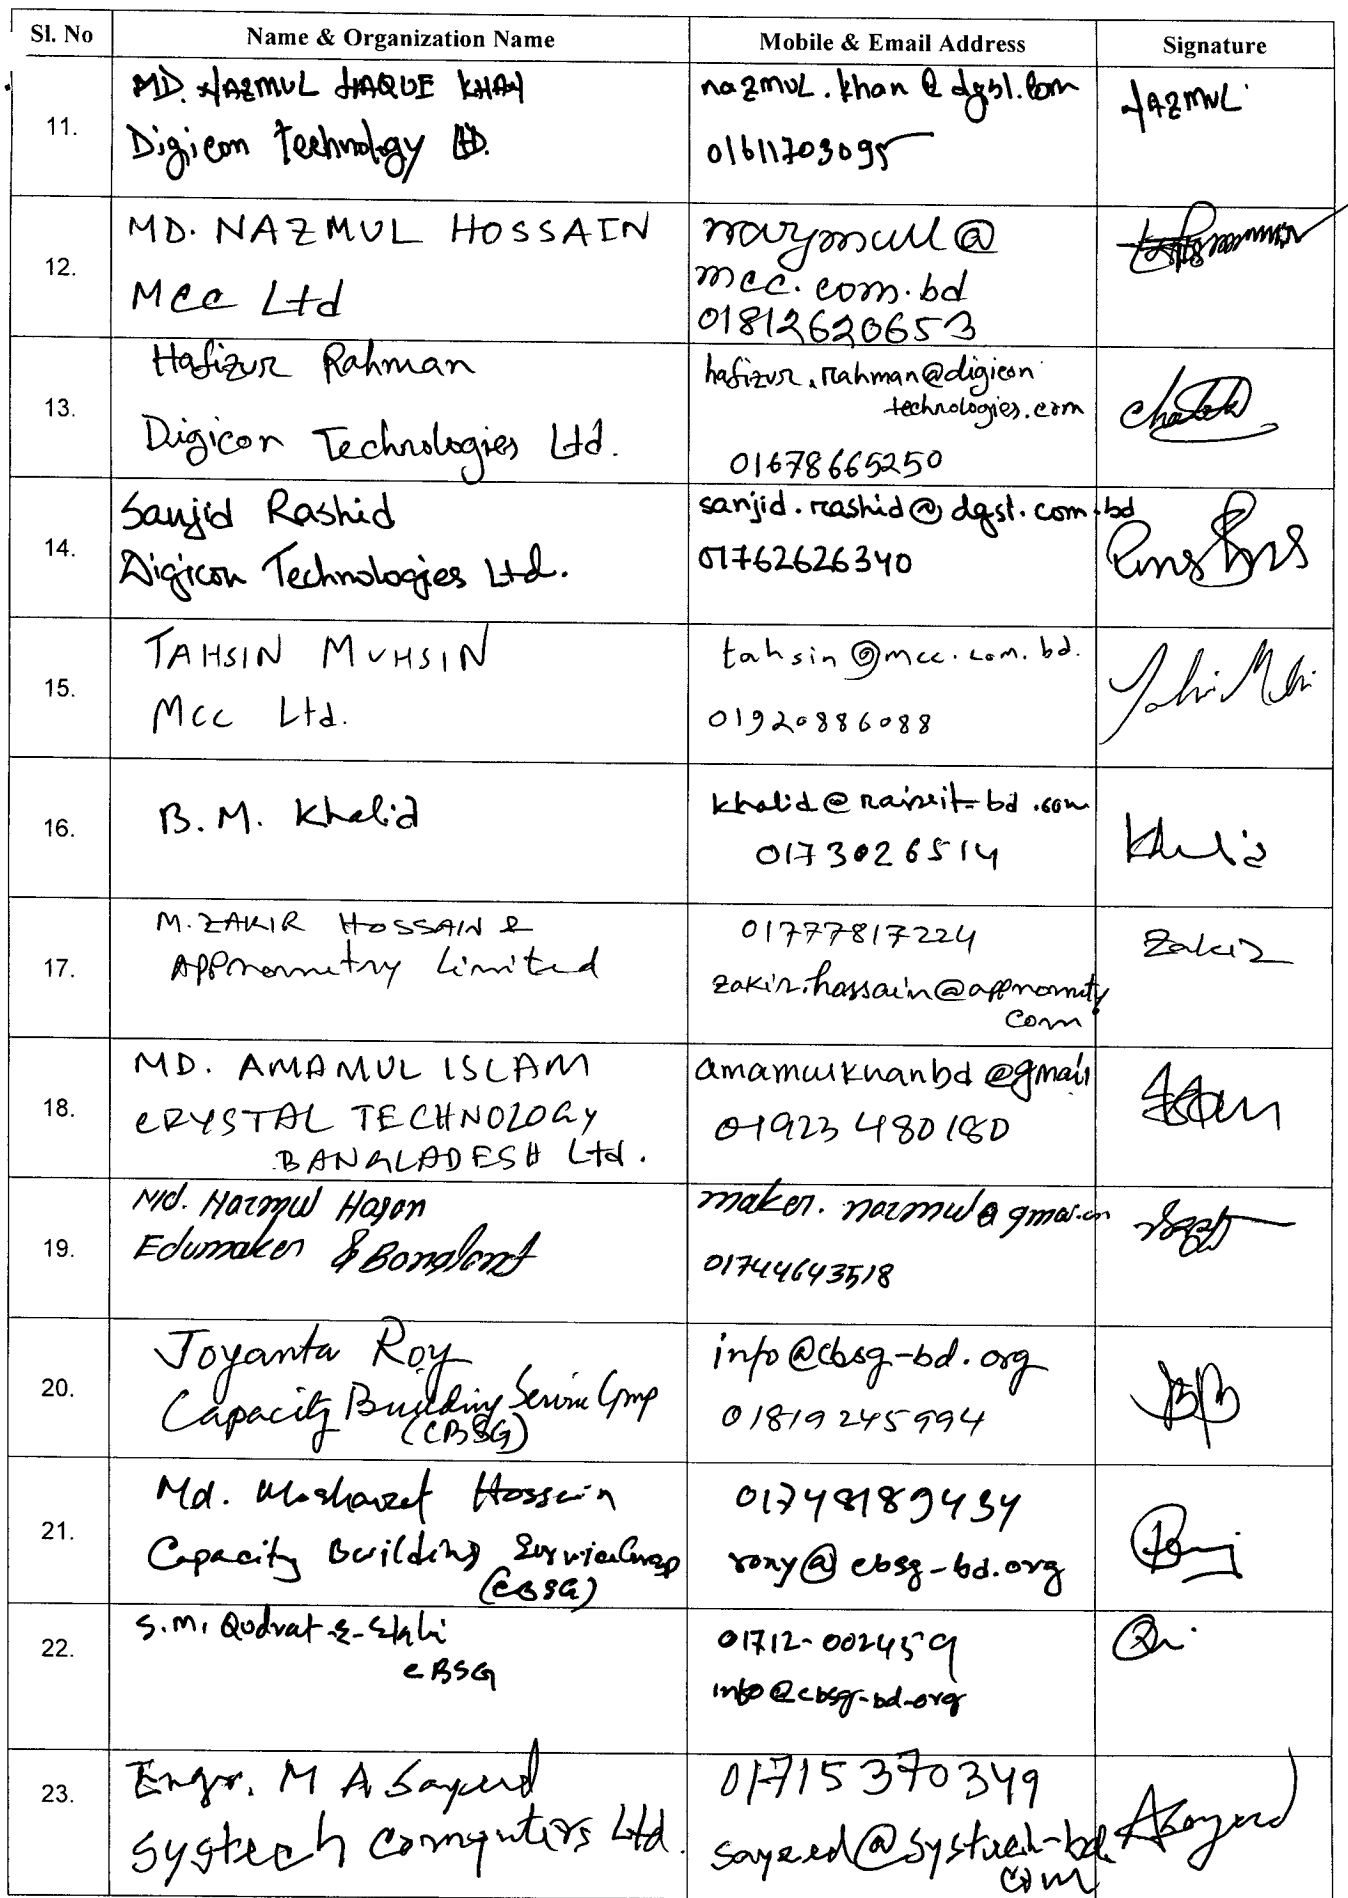 Sl. No Name & Organization Name Mobile & Email Address Signature
11.
MD. NAZMUL HAQUE KHAN
Digicon Technology LTD.
nazmul.khan@dgsl.com
01611703095
NAZMUL
12.
MD. NAZMUL HOSSAIN
MCC Ltd
nazmul@
mcc.com.bd
01812620653
13.
Hafizur Rahman
Digicon Technologies Ltd.
hafizur.rahman@digicon
technologies.com
01678665250
14.
Sanjid Rashid
Digicon Technologies Ltd.
sanjid.rashid@dgsl.com.bd
01762626340
15.
TAHSIN MUHSIN
MCC Ltd.
tahsin@mcc.com.bd.
01920886088
16.
B.M. Khalid
khalid@raiseit-bd.com
0173026514
Khalid
17.
M. ZAKIR HOSSAIN
APPnometry Limited
01777817224
zakir.hossain@appnomety
com
Zakir
18.
MD. AMAMUL ISLAM
CRYSTAL TECHNOLOGY
BANGLADESH Ltd.
amamulkhanbd@gmail
01923480180
19.
Md. Nazmul Hasan
Edumaker &
maker.nazmul@
01744643518
20.
Joyanta Roy
Capacity Building Service Group
(CBSG)
info@cbsg-bd.org
01819245994
21.
Md. Mosharef Hossain
Capacity Building Service Group
(CBSG)
01748189434
rony@cbsg-bd.org
22.
S.M. Qudrat-E-Elahi
CBSG
01712-002459
info@cbsg-bd-org
23.
Engr. M A Sayeed
Systech Computers Ltd.
01715370349
sayeed@systech-bd.
com
ASayeed